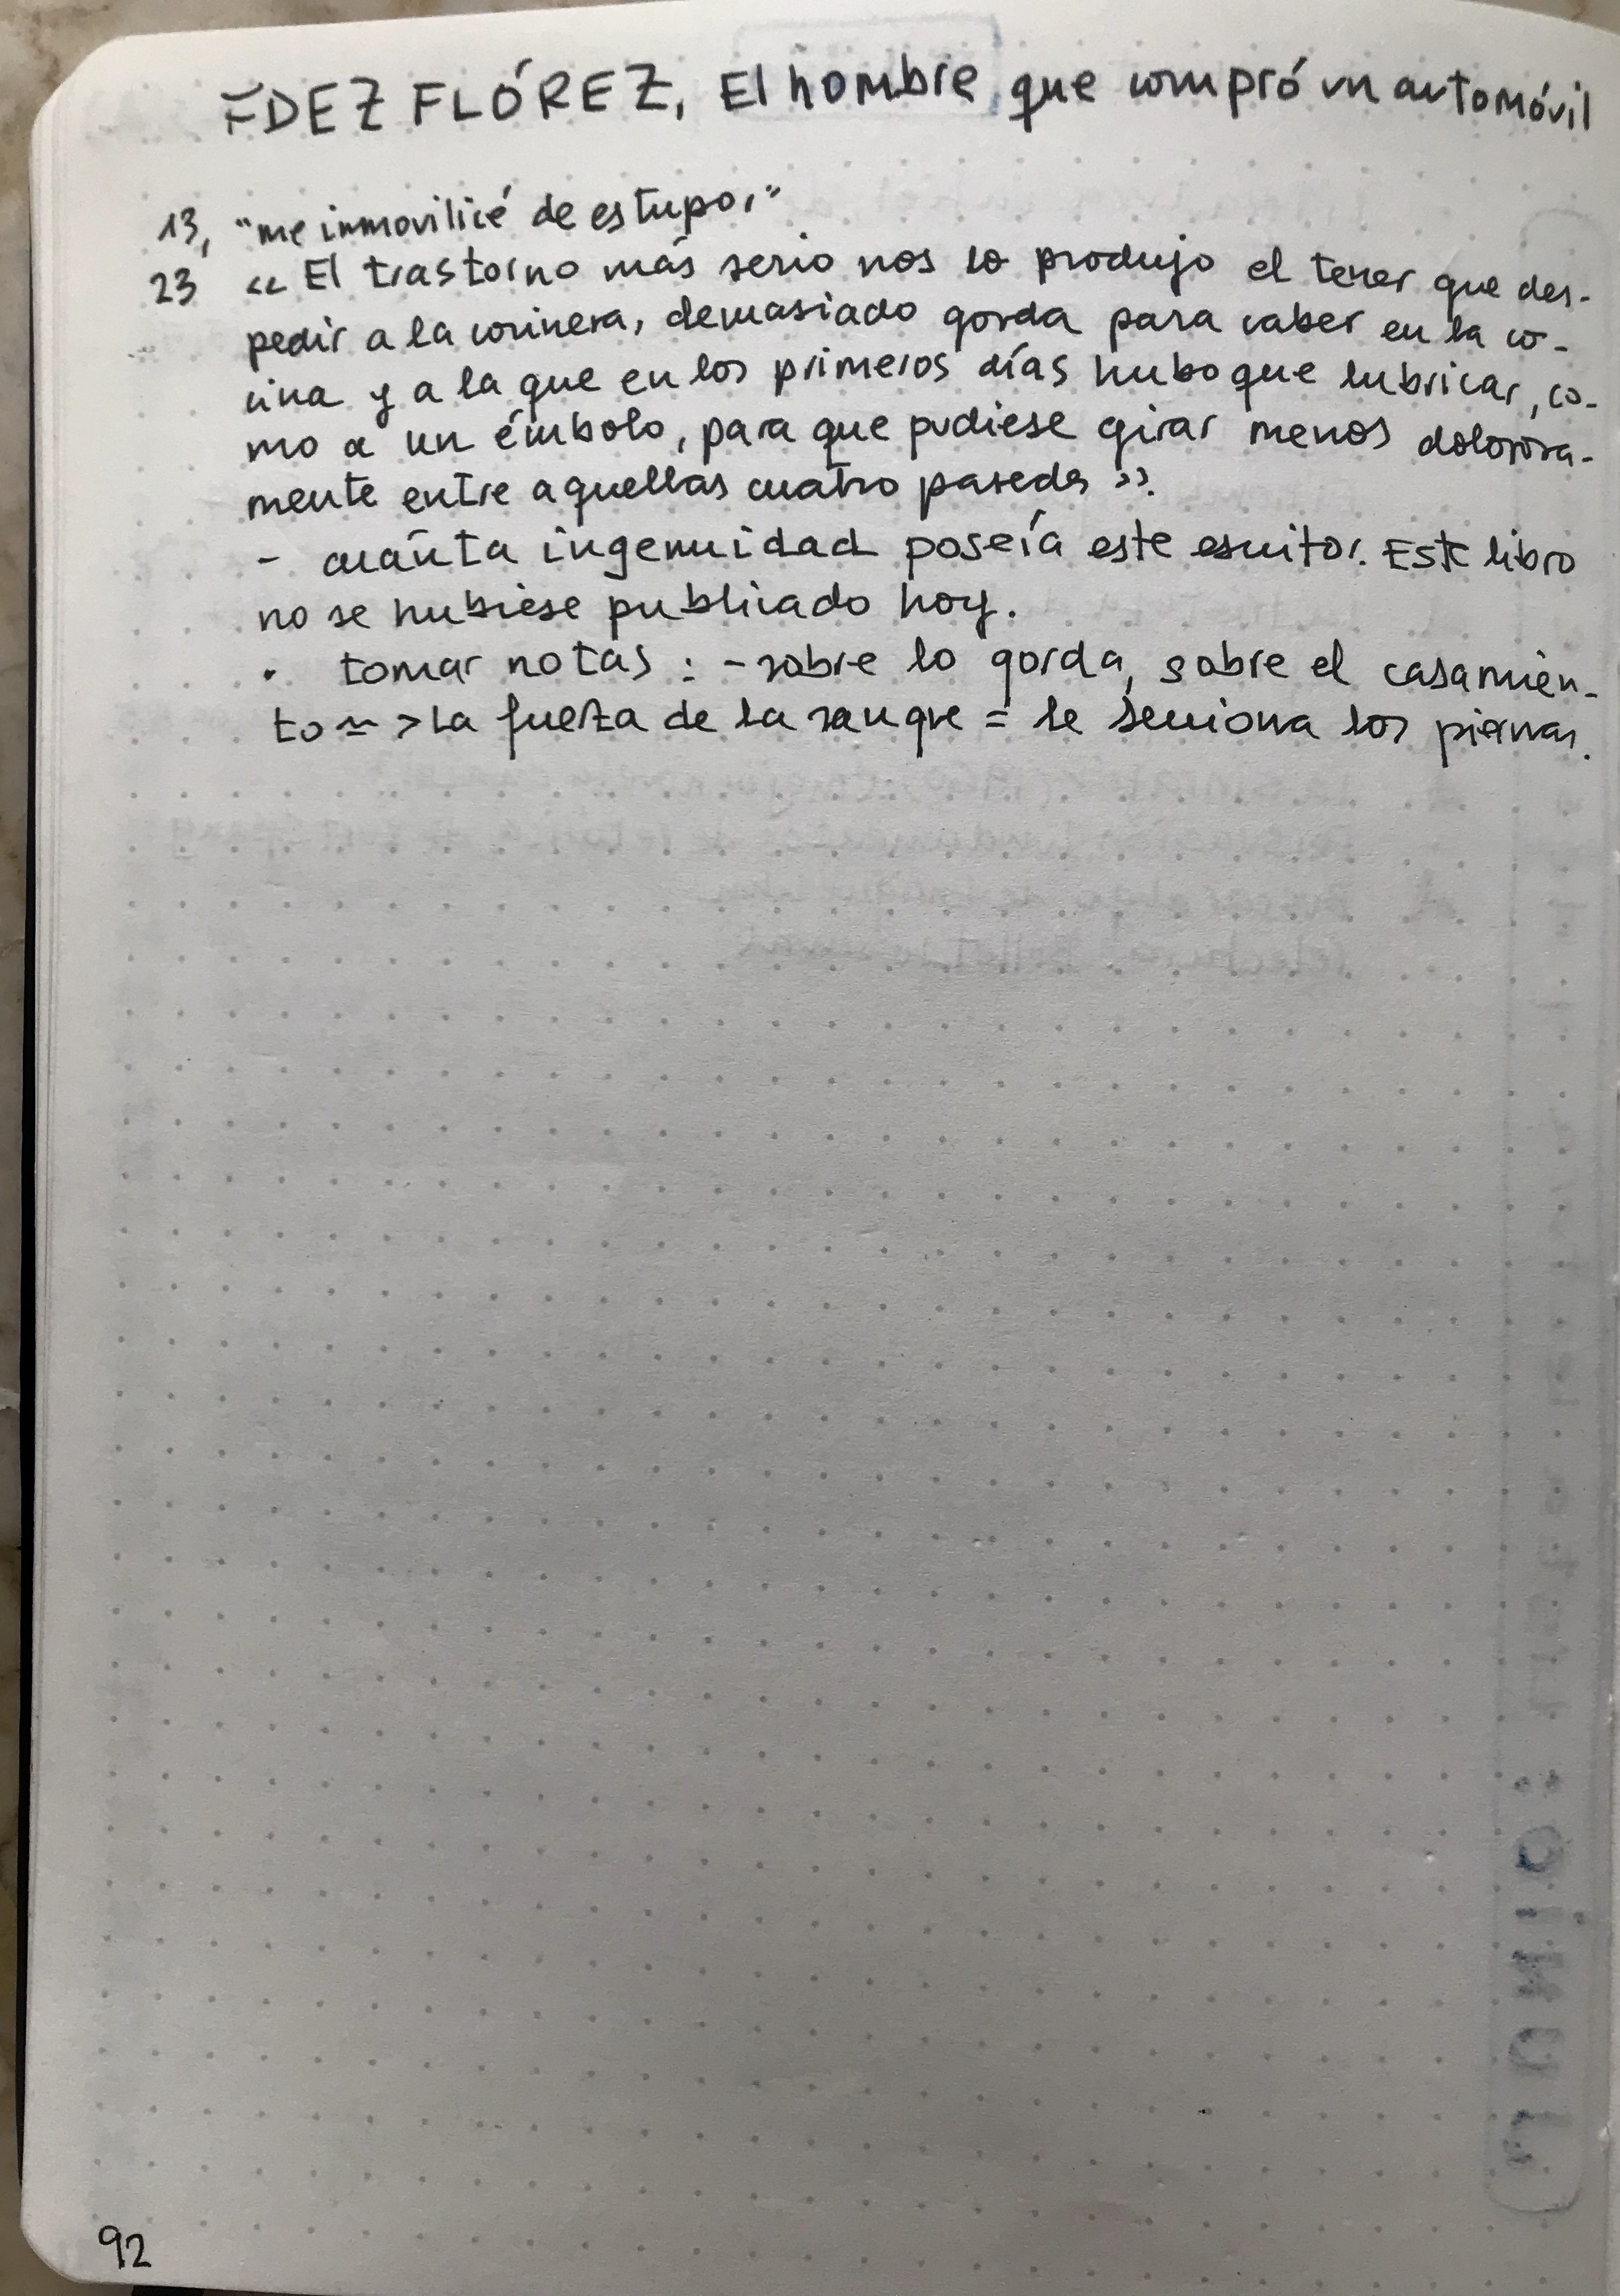 FDEZ FLÓREZ, El hombre que compró un automóvil
13, "me inmovilicé de estupor"
23 « El trastorno más serio nos lo produjo el tener que des-
pedir a la cocinera, demasiado gorda para caber en la co-
cina y a la que en los primeros días hubo que lubricar, co-
mo a un émbolo, para que pudiese girar menos dolorosa-
mente entre aquellas cuatro paredes ».
- cuánta ingenuidad poseía este escritor. Este libro
no se hubiese publicado hoy.
· tomar notas : - sobre lo gorda, sobre el casamien-
to ≃ > La fuerza de la sangre = le las piernas.
92